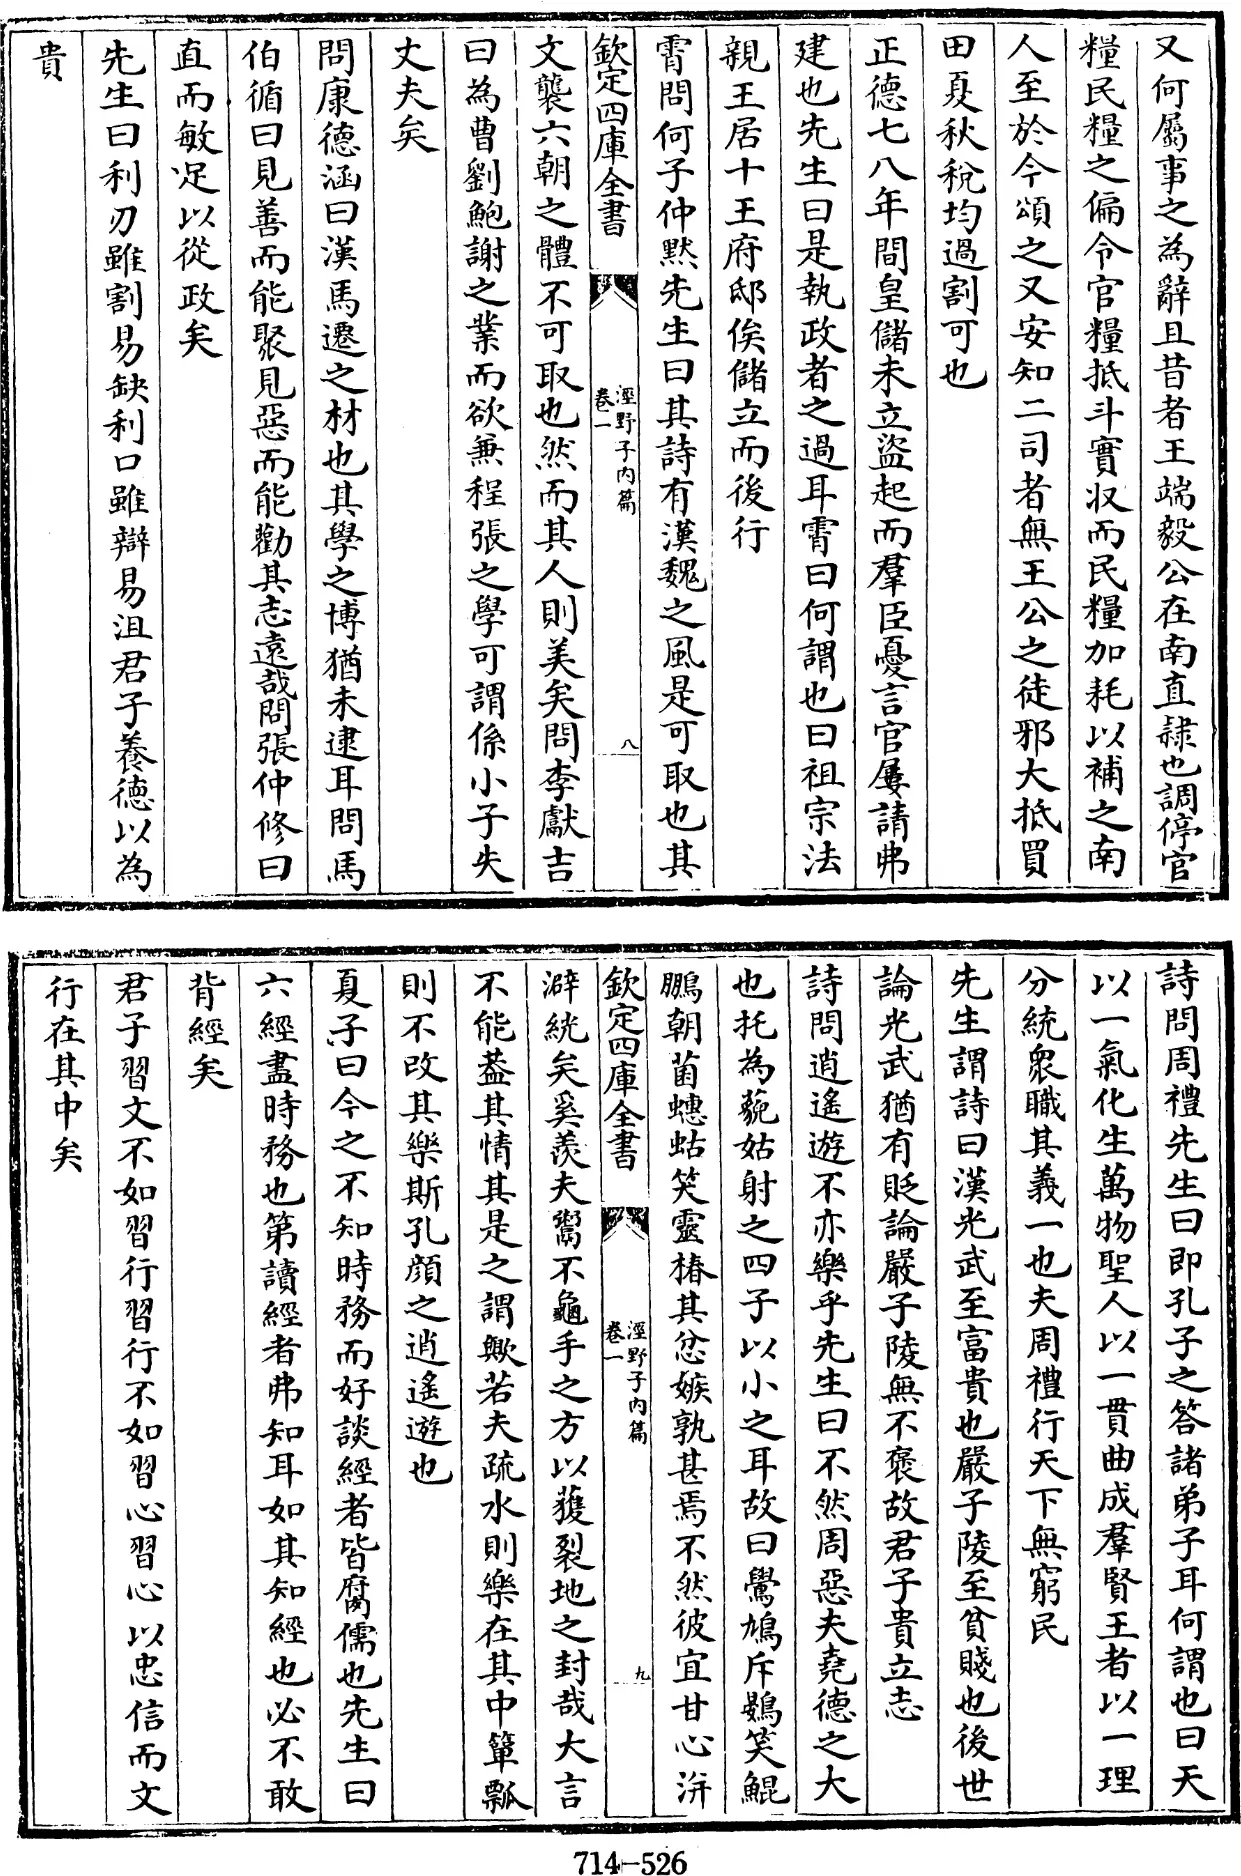 又何屬事之為辭且昔者王端毅公在南直隸也調停官
糧民糧之偏令官糧抵斗實收而民糧加耗以補之南
人至於今頌之又安知二司者無王公之徒邪大抵買
田夏秋稅均過割可也
正德七八年間皇儲未立盜起而羣臣憂言官屢請弗
建也先生曰是執政者之過耳霄曰何謂也曰祖宗法
親王居十王府邸俟儲立而後行
霄問何子仲黙先生曰其詩有漢魏之風是可取也其
欽定四庫全書
涇野子內篇
卷一
八
文襲六朝之體不可取也然而其人則美矣問李獻吉
曰為曹劉鮑謝之業而欲兼程張之學可謂係小子失
丈夫矣
問康德涵曰漢馬遷之材也其學之博猶未逮耳問馬
伯循曰見善而能聚見惡而能勸其志遠哉問張仲修曰
直而敏足以從政矣
先生曰利刃雖割易缺利口雖辯易沮君子養德以為
貴
詩問周禮先生曰即孔子之答諸弟子耳何謂也曰天
以一氣化生萬物聖人以一貫曲成羣賢王者以一理
分統衆職其義一也夫周禮行天下無窮民
先生謂詩曰漢光武至富貴也嚴子陵至貧賤也後世
論光武猶有貶論嚴子陵無不褒故君子貴立志
詩問逍遙遊不亦樂乎先生曰不然周惡夫堯德之大
也托為藐姑射之四子以小之耳故曰鷽鳩斥鷃笑鯤
鵬朝菌蟪蛄笑靈椿其忿嫉孰甚焉不然彼宜甘心洴
欽定四庫全書
涇野子內篇
卷一
九
澼絖矣奚羨夫鬻不龜手之方以獲裂地之封哉大言
不能葢其情其是之謂歟若夫疏水則樂在其中簞瓢
則不改其樂斯孔顔之逍遙遊也
夏子曰今之不知時務而好談經者皆腐儒也先生曰
六經盡時務也第讀經者弗知耳如其知經也必不敢
背經矣
君子習文不如習行習行不如習心習心以忠信而文
行在其中矣
714-526